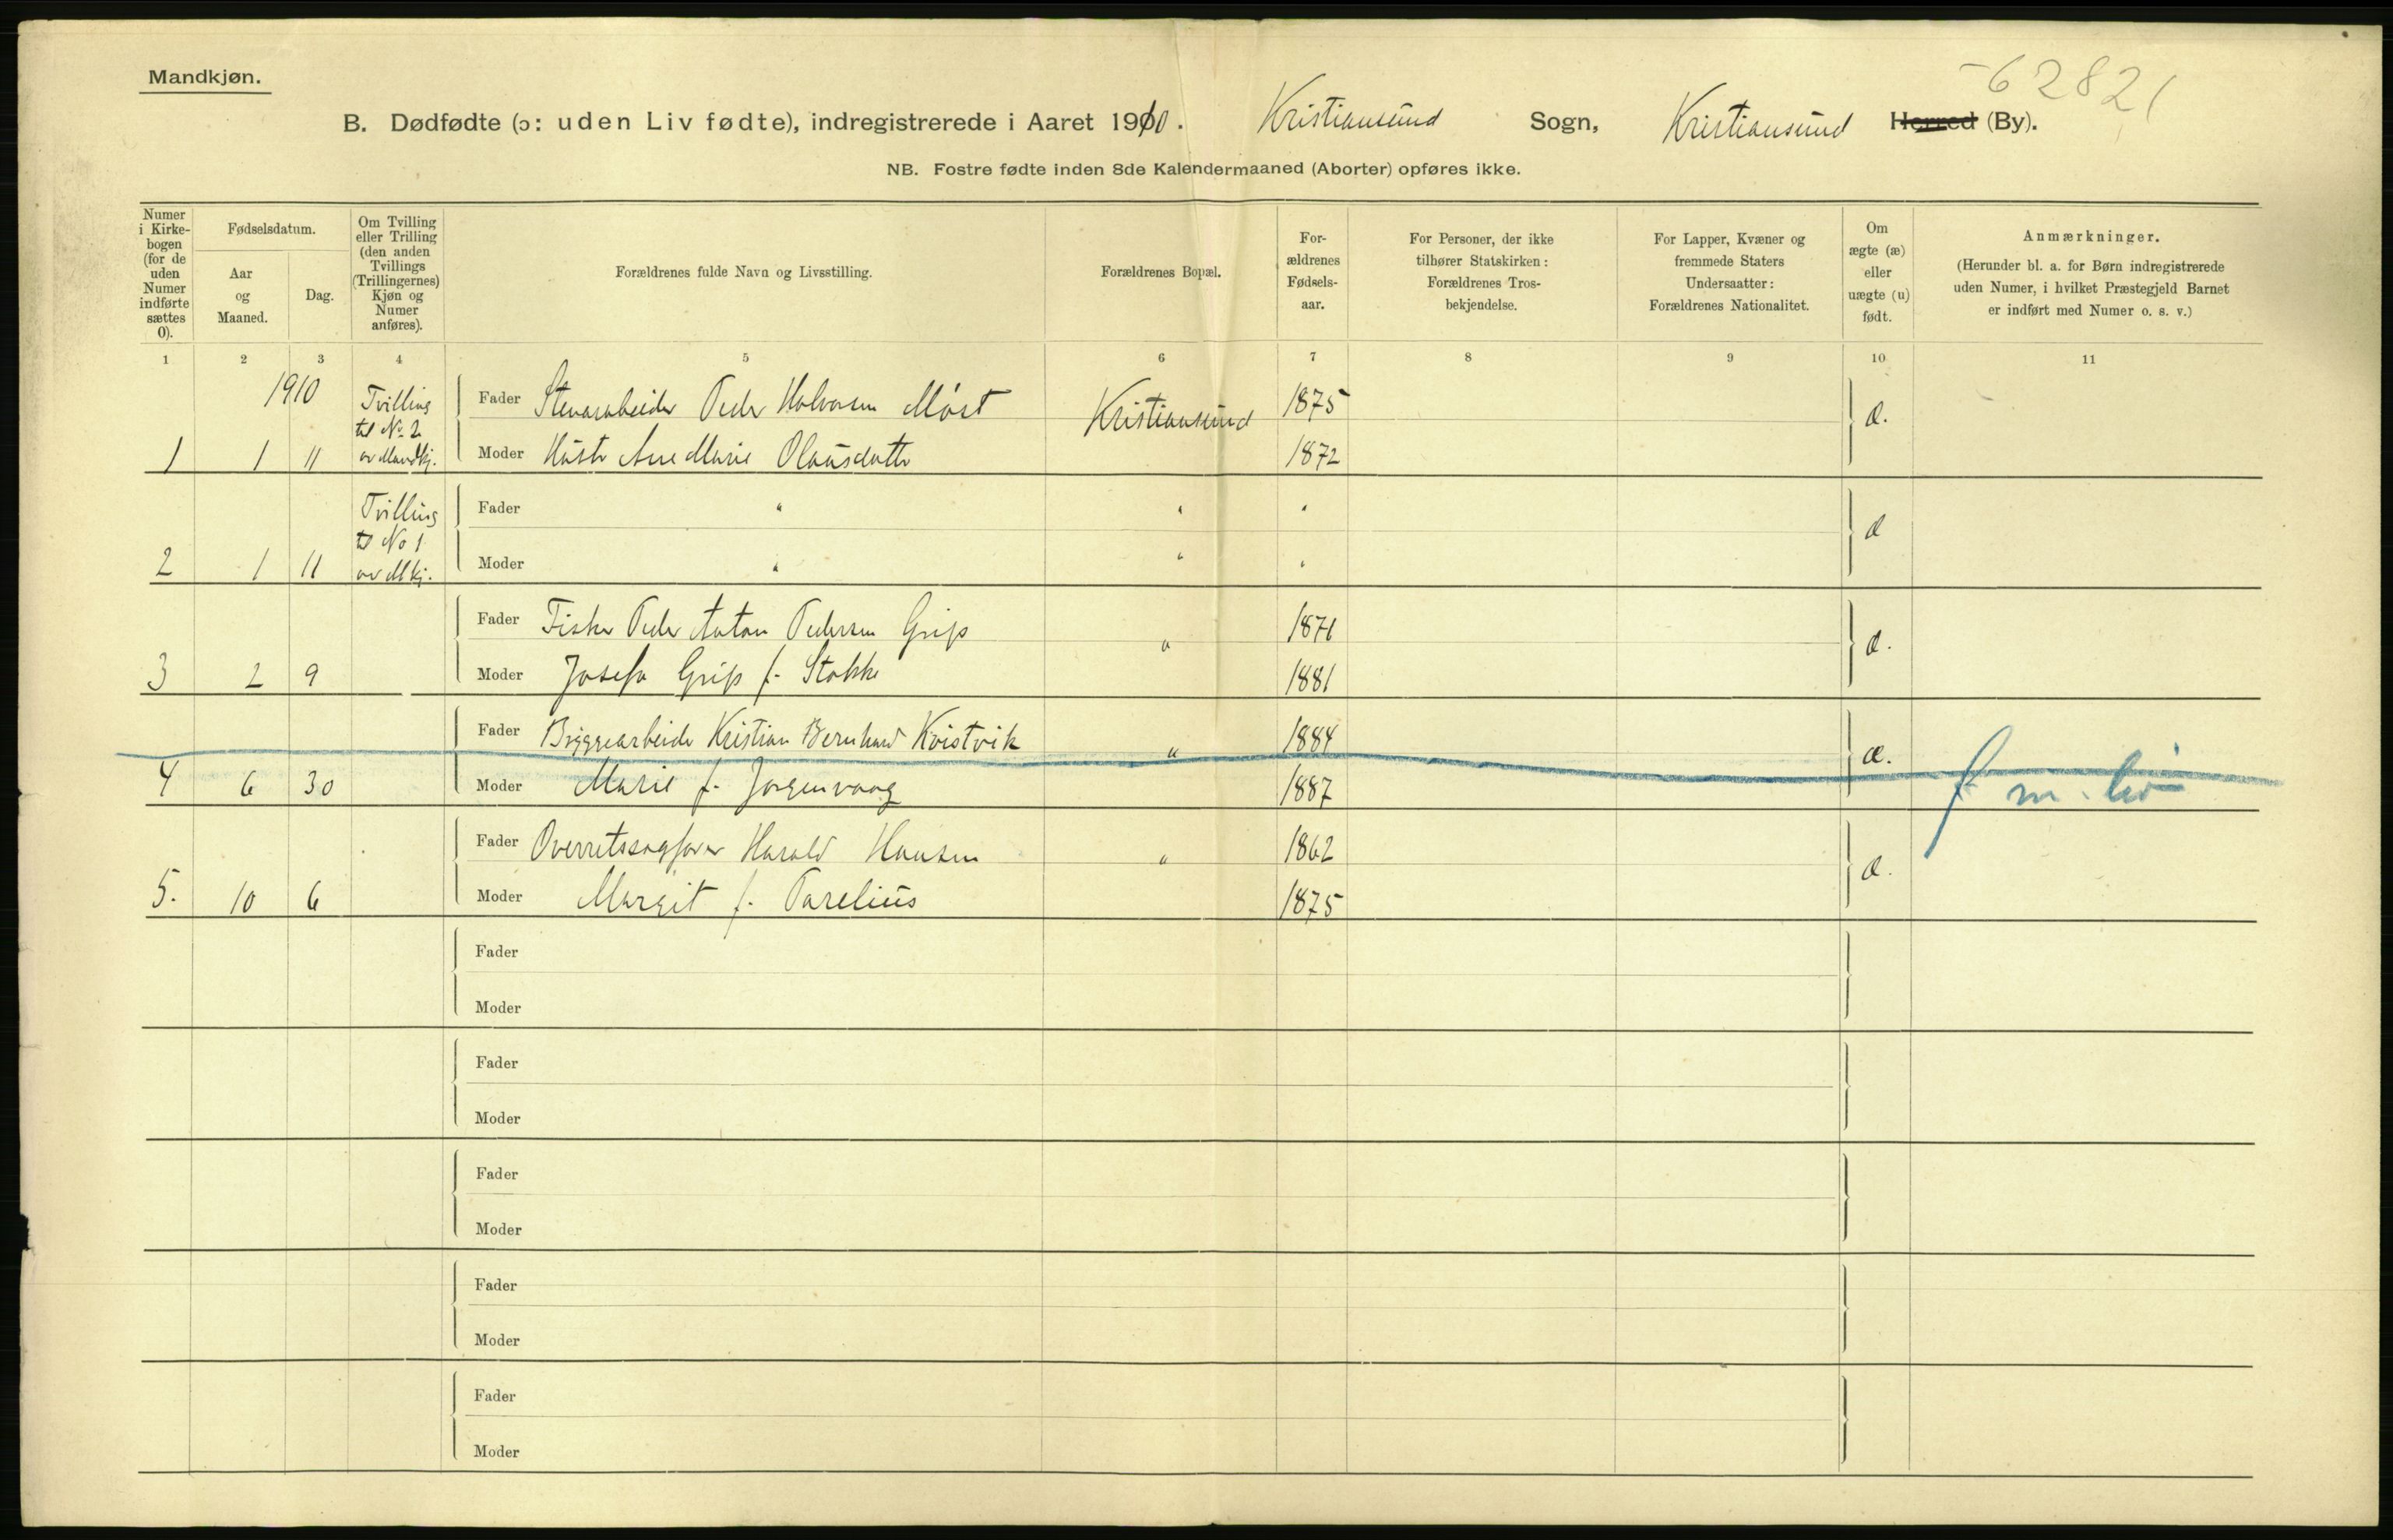 Mandkjøn.
62821
B. Dødfødte (ɔ: uden Liv fødte), indregistrerede i Aaret 1910. Kristiansund Sogn, Kristiansund Herred (By).
NB. Fostre fødte inden 8de Kalendermaaned (Aborter) opføres ikke.
Numer i Kirke-bogen (for de uden Numer indførte sættes 0).
Fødselsdatum.
Aar og Maaned.
Dag.
Om Tvilling eller Trilling (den anden Tvillings (Trillingernes) Kjøn og Numer anføres).
Forældrenes fulde Navn og Livsstilling.
Forældrenes Bopæl.
For-ældrenes Fødsels-aar.
For Personer, der ikke tilhører Statskirken: Forældrenes Tros-bekjendelse.
For Lapper, Kvæner og fremmede Staters Undersaatter: Forældrenes Nationalitet.
Om ægte (æ) eller uægte (u) født.
Anmærkninger.
(Herunder bl. a. for Børn indregistrerede uden Numer, i hvilket Præstegjeld Barnet er indført med Numer o. s. v.)
1 2 3 4 5 6 7 8 9 10 11
1910 Tvilling til No 2 av Mandkj.
Fader Peder Halvorsen Møst Kristiansund 1875 æ.
1 1 11 Moder Hustr Ane Marie Olausdatter 1872
Tvilling til No 1 av Mkj.
Fader " " " æ
2 1 11 Moder " " "
Fader Fisker Peder Anton Pedersen Grip " 1871 æ.
3 2 9 Moder Josefa Grip f. Stokke 1881
Fader Bryggearbeider Kristian Bernhard Kvistvik " 1884 æ.
4 6 30 Moder Marie f. Jørgenvaag 1887 f. m. liv
Fader Overretssagfører Harald Hansen " 1862 æ.
5. 10 6 Moder Margit f. Parelius 1875
Fader
Moder
Fader
Moder
Fader
Moder
Fader
Moder
Fader
Moder